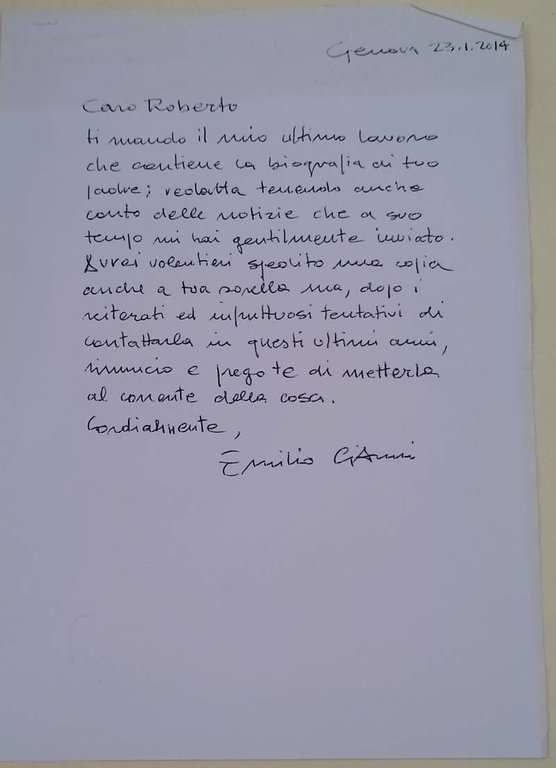 Genova 23.1.2014
Caro Roberto
ti mando il mio ultimo lavoro
che contiene la biografia di tuo
padre; redatta tenendo anche
conto delle notizie che a suo
tempo mi hai gentilmente inviato.
Avrei volentieri spedito una copia
anche a tua sorella ma, dopo i
reiterati ed infruttuosi tentativi di
contattarla in questi ultimi anni,
rinuncio e prego te di metterla
al corrente della cosa.
Cordialmente,
Emilio Gianni